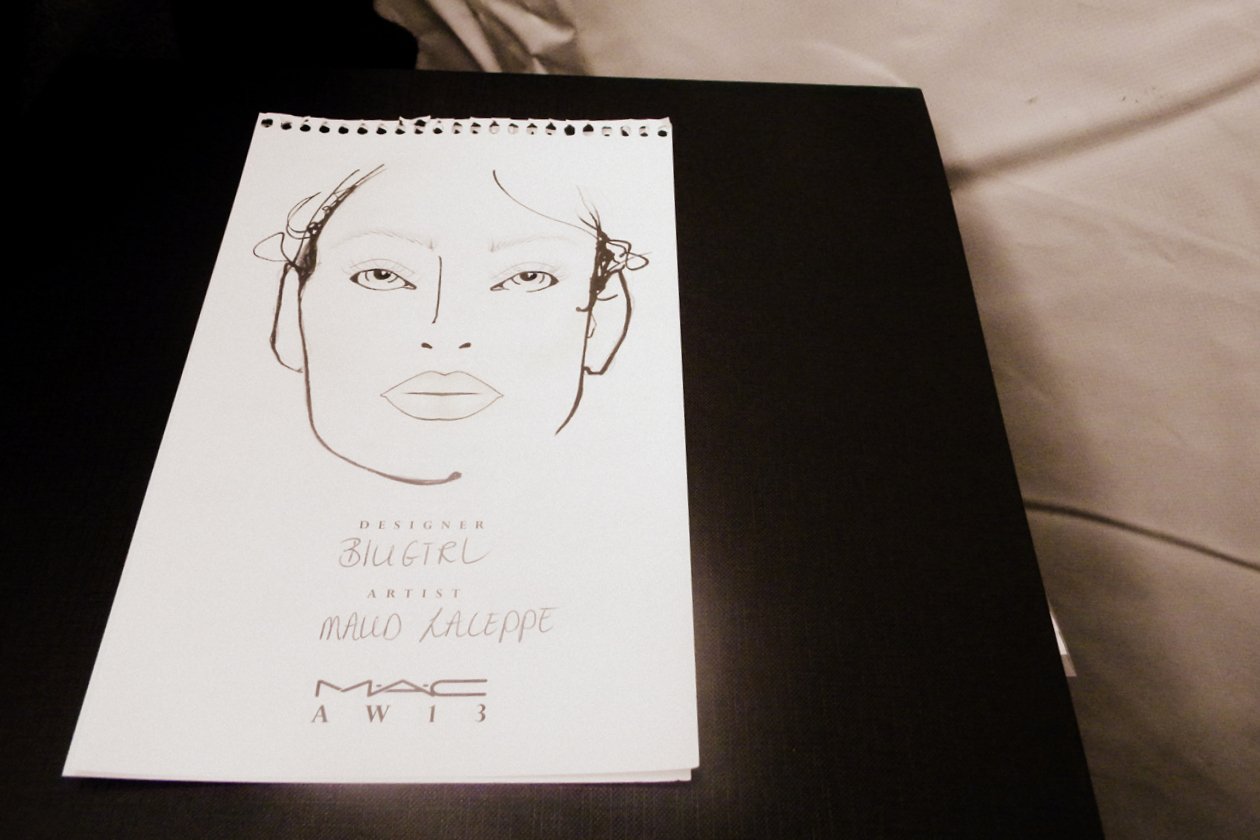 DESIGNER
BLUGIRL
ARTIST
MAUD LACEPPE
M·A·C
AW13